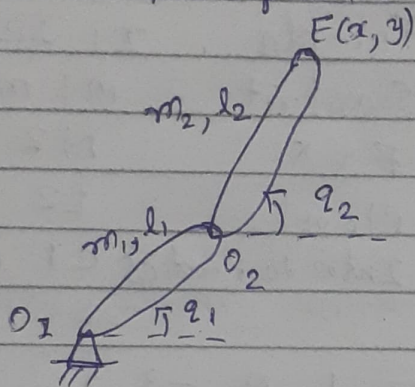 E(x, y)
m2, l2
q2
m1, l1
O2
O1
q1